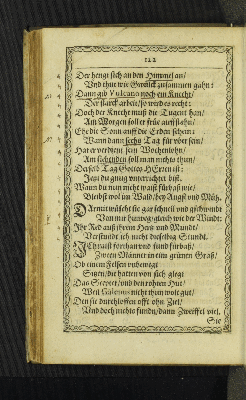 122
Der hengt sich an den Himmel an/
Vnd thut wie Gewülck zusammen gahn:
Dann gib Vulcano noch ein Knecht/
Der starck arbeit/ so wird es recht:
Doch der Knecht muß die Tugent han/
Am Morgen soll er früe auffstahn/
Ehe die Sonn auff die Erden schein/
Wann dann sechs Tag für vber sein/
Hat er verdient sein Wochenlohn/
Am siebenden soll man nichts thun/
Derselb Tag Gottes HErren ist:
Jetzt du gnug vnterrichtet bist.
Wann du nun nicht waist fürbaß wie/
Bleibst wol im Wald/ bey Angst vnd Müh.
Darent wüscht sie gar schnell vnd geschwindt
Von mir hinweg/ gleich wie der Windt:
Ihr Red auß ihrem Hertz vnd Mundt/
Verstundt ich nicht dieselbig Stundt.
Ich traist forthan vnd fund fürbaß/
Zween Männer in eim grünen Graß/
Ob einem Felsen
Sitzen/ die hatten von sich glegt
Das Scepter/ vnd den rohten Hut/
Weil Saturnus nicht thun wolt gut/
Den sie durchloffen offt ohn Ziel/
Vnd doch nichts funden/ dann Zweiffel viel.
Sie